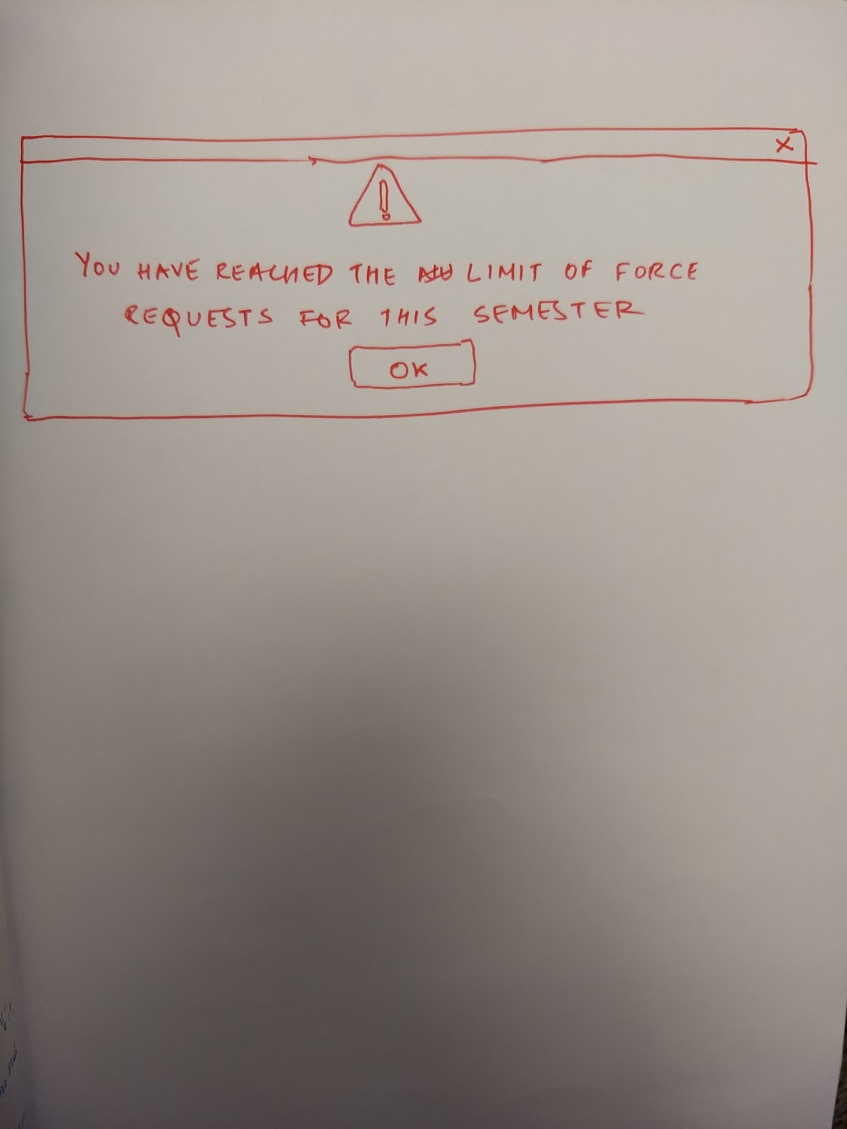 X
!
YOU HAVE REACHED THE LIMIT OF FORCE
REQUESTS FOR THIS SEMESTER
OK